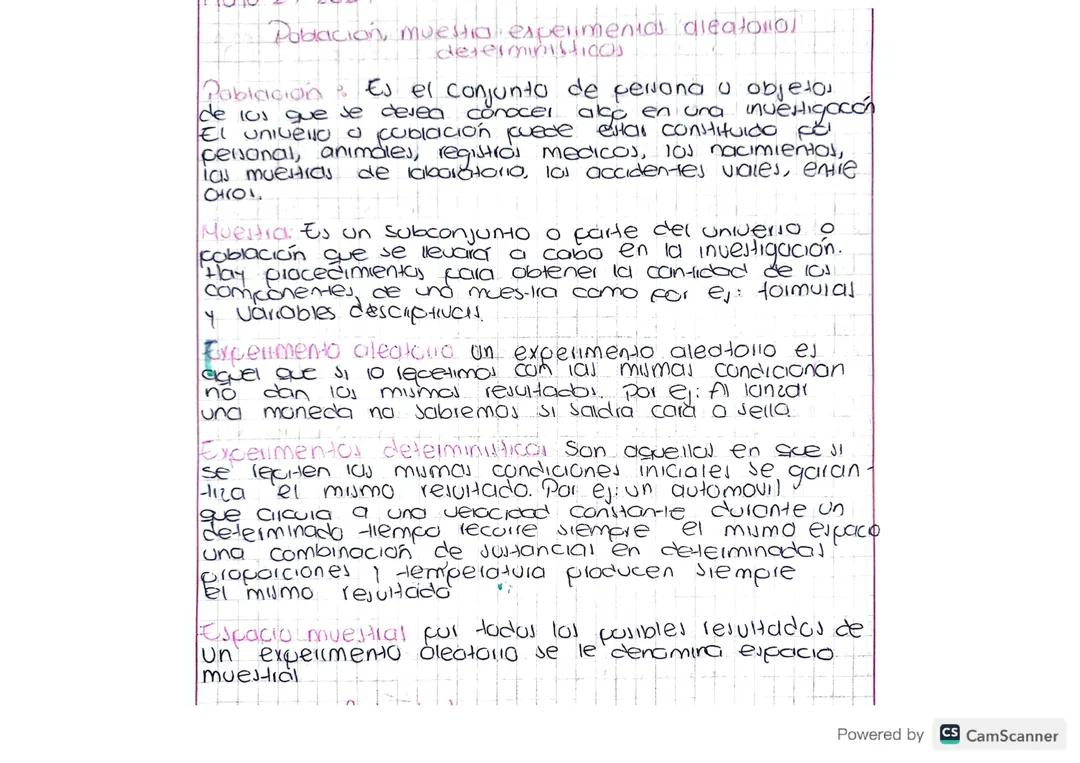 Población, muestra experimentos aleatorios
deterministicos
Población: Es el conjunto de persona u objetos
de los que se desea conocer algo en una investigación
El universo o población puede estar constituido por
personas, animales, registros medicos, los nacimientos,
las muestras de laboratorio, los accidentes viales, entre
otros.
Muestra: Es un subconjunto o parte del universo o
población que se llevara a cabo en la investigación.
Hay procedimientos para obtener la cantidad de los
componentes de una muestra como por ej: formulas
y variables descriptivas.
Experimento aleatorio un experimento aleatorio es
aquel que si lo repetimos con las mismas condicionan
no dan los mismos resultados. Por ej: Al lanzar
una moneda no sabremos si saldra cara o sello
Experimentos deterministicos Son aquellos en que si
se repiten las mismas condiciones iniciales se garan-
tiza el mismo resultado. Por ej: un automovil
que circula a una velocidad constante durante un
determinado tiempo recorre siempre el mismo espacio
una combinación de sustancias en determinadas
proporciones y temperatura producen siempre
el mismo resultado
Espacio muestral por todos los posibles resultados de
un experimento aleatorio se le denomina espacio
muestral
Powered by CS CamScanner